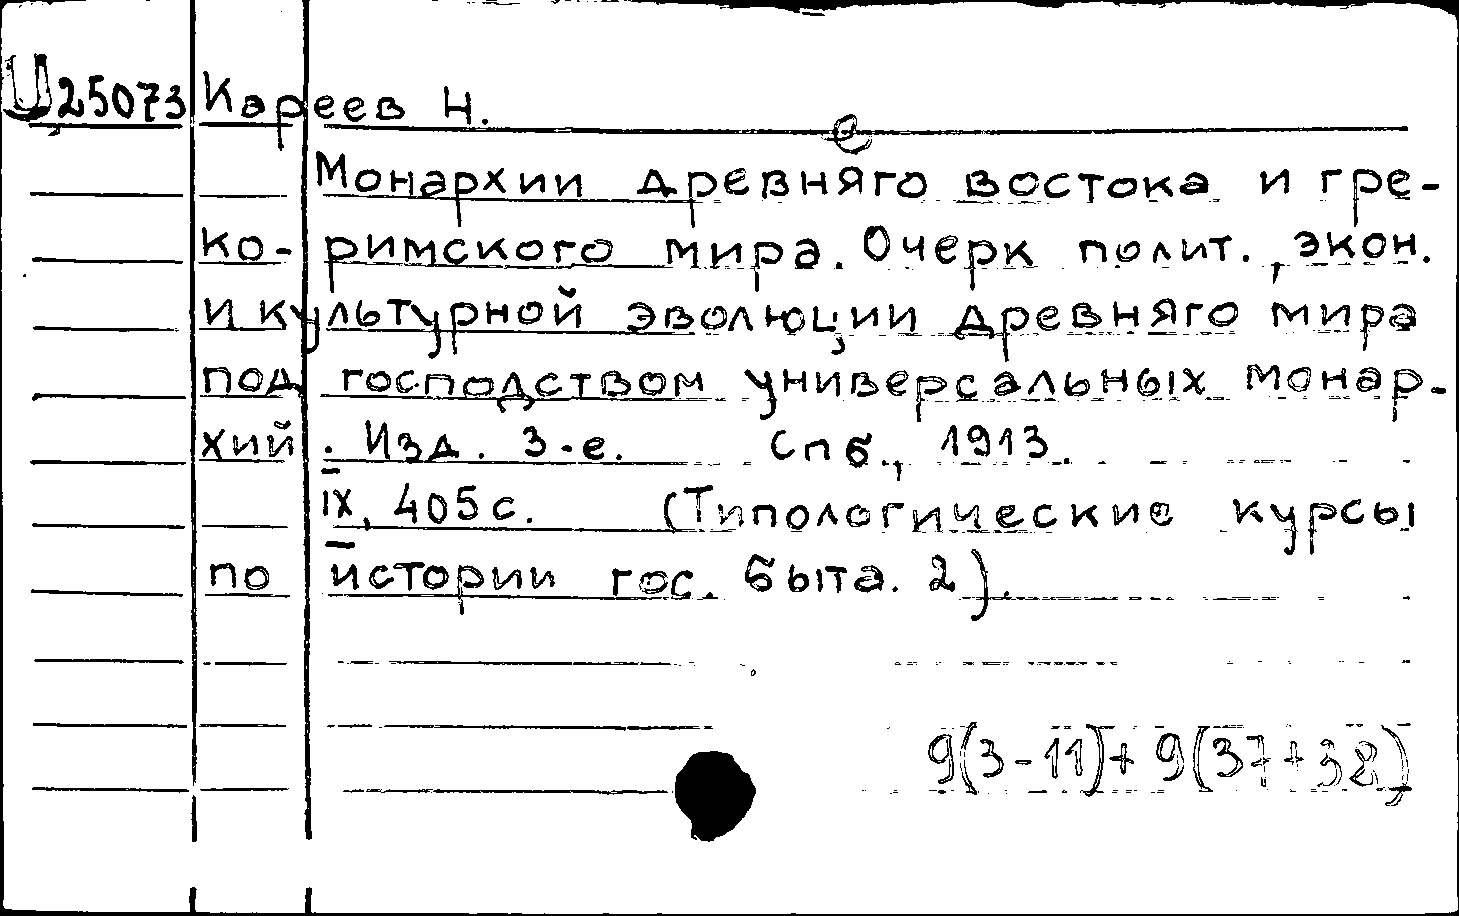 Ц25073 Кареев Н.
е
Монархии древняго востока и гре-
ко-римского мира. Очерк полит., экон.
и культурной эволюции древняго мира
под господством универсальных монар-
хий. Изд. 3-е. Спб., 1913.
IX, 405 с. (Типологические курсы
по истории гос. быта. 2).
9(3-11)+9(37+38)